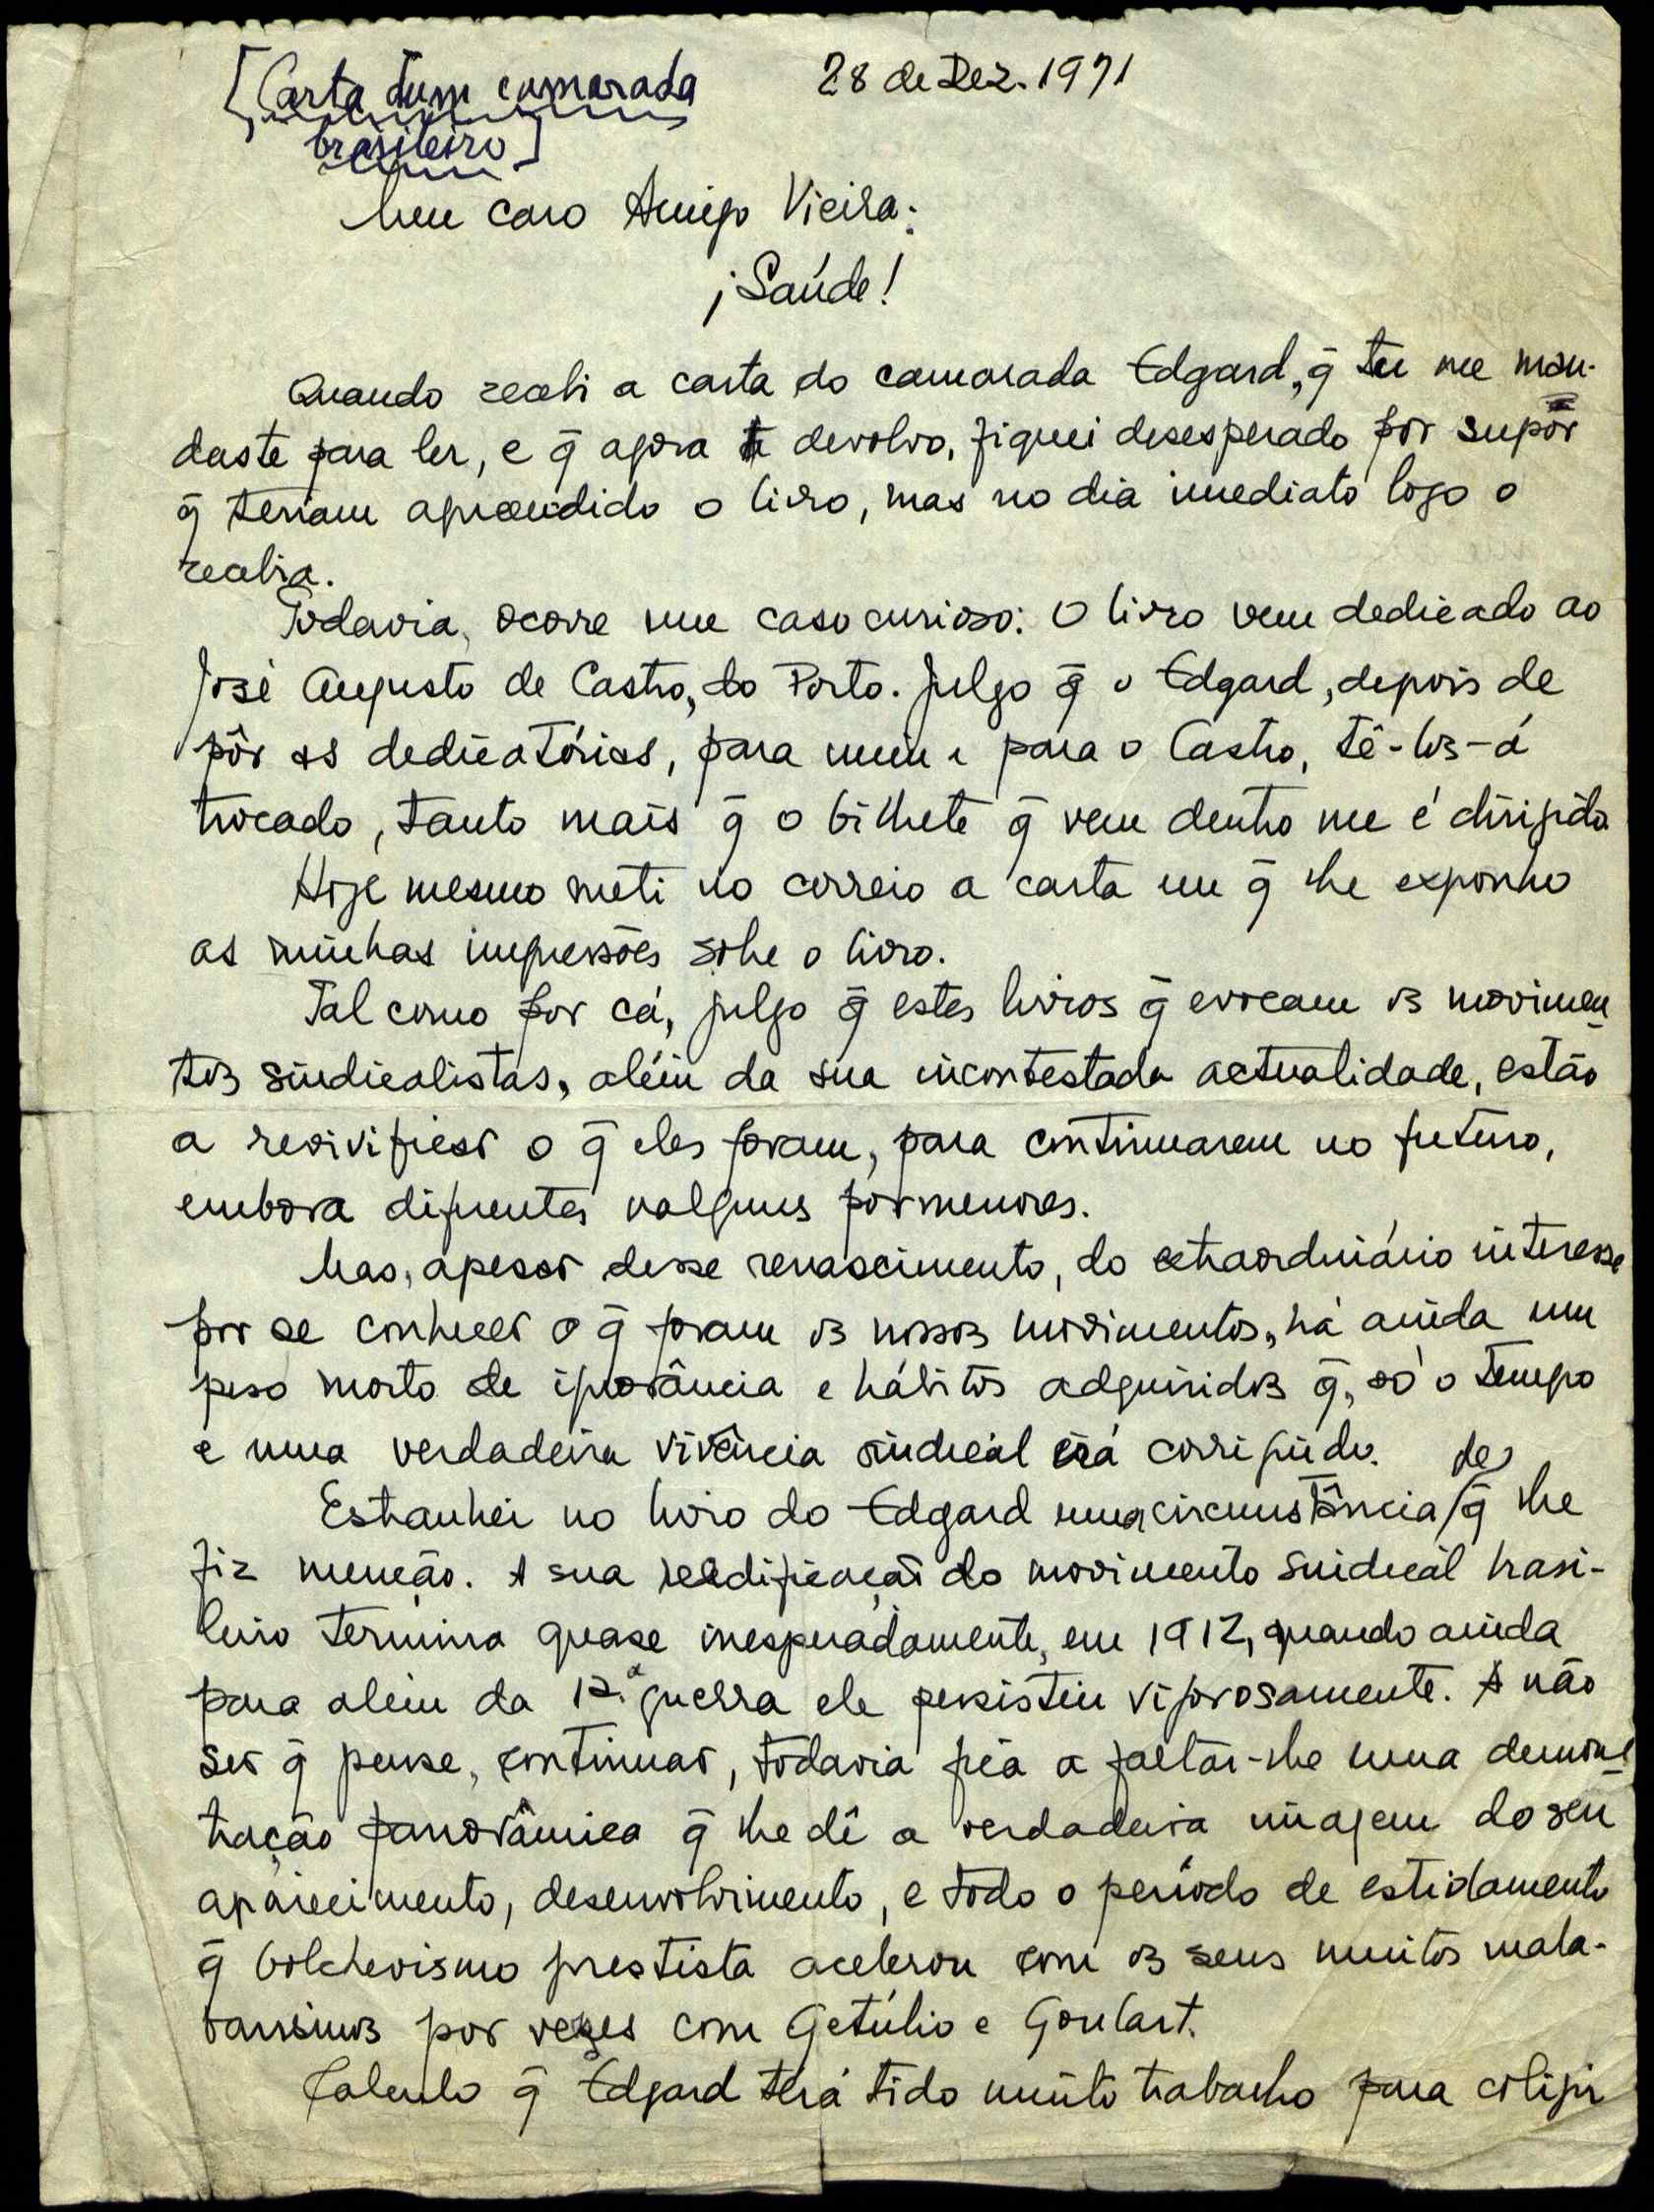 [Carta dum camarada 28 de Dez. 1971
brasileiro]
Meu caro Amigo Vieira:
¡Saúde!
Quando recebi a carta do camarada Edgard, q̄ tu me man-
daste para ler, e q̄ agora te devolvo, fiquei desesperado por supôr
q̄ teriam apreendido o livro, mas no dia imediato logo o
recebia.
Todavia, ocorre um caso curioso: O livro vem dedicado ao
José Augusto de Castro, do Porto. Julgo q̄ o Edgard, depois de
pôr as dedicatórias, para mim e para o Castro, tê-los-á
trocado, tanto mais q̄ o bilhete q̄ vem dentro me é dirigido
Hoje mesmo meti no correio a carta em q̄ lhe exponho
as minhas impressões sobre o livro.
Tal como por cá, julgo q̄ estes livros q̄ evocam os movimen-
tos sindicalistas, além da sua incontestada actualidade, estão
a revivificar o q̄ eles foram, para continuarem no futuro,
embora diferentes nalguns pormenores.
Mas, apesar desse renascimento, do extraordinário interesse
por se conhecer o q̄ foram os nossos movimentos, há ainda um
peso morto de ignorância e hábitos adquiridos q̄, só o tempo
e uma verdadeira vivência sindical irá corrigindo.
Estranhei no livro do Edgard uma circunstância de q̄ lhe
fiz menção. A sua reedificação do movimento sindical brasi-
leiro termina quase inesperadamente, em 1912, quando ainda
para além da 1ª. guerra ele persistiu vigorosamente. A não
ser q̄ pense, continuar, todavia fica a faltar-lhe uma demons-
tração panorâmica q̄ lhe dê a verdadeira imagem do seu
aparecimento, desenvolvimento, e todo o período de
q̄ bolchevismo prestista acelerou com os seus muitos mala-
barismos por vezes com Getúlio e Goulart.
Calculo q̄ Edgard terá tido muito trabalho para coligir